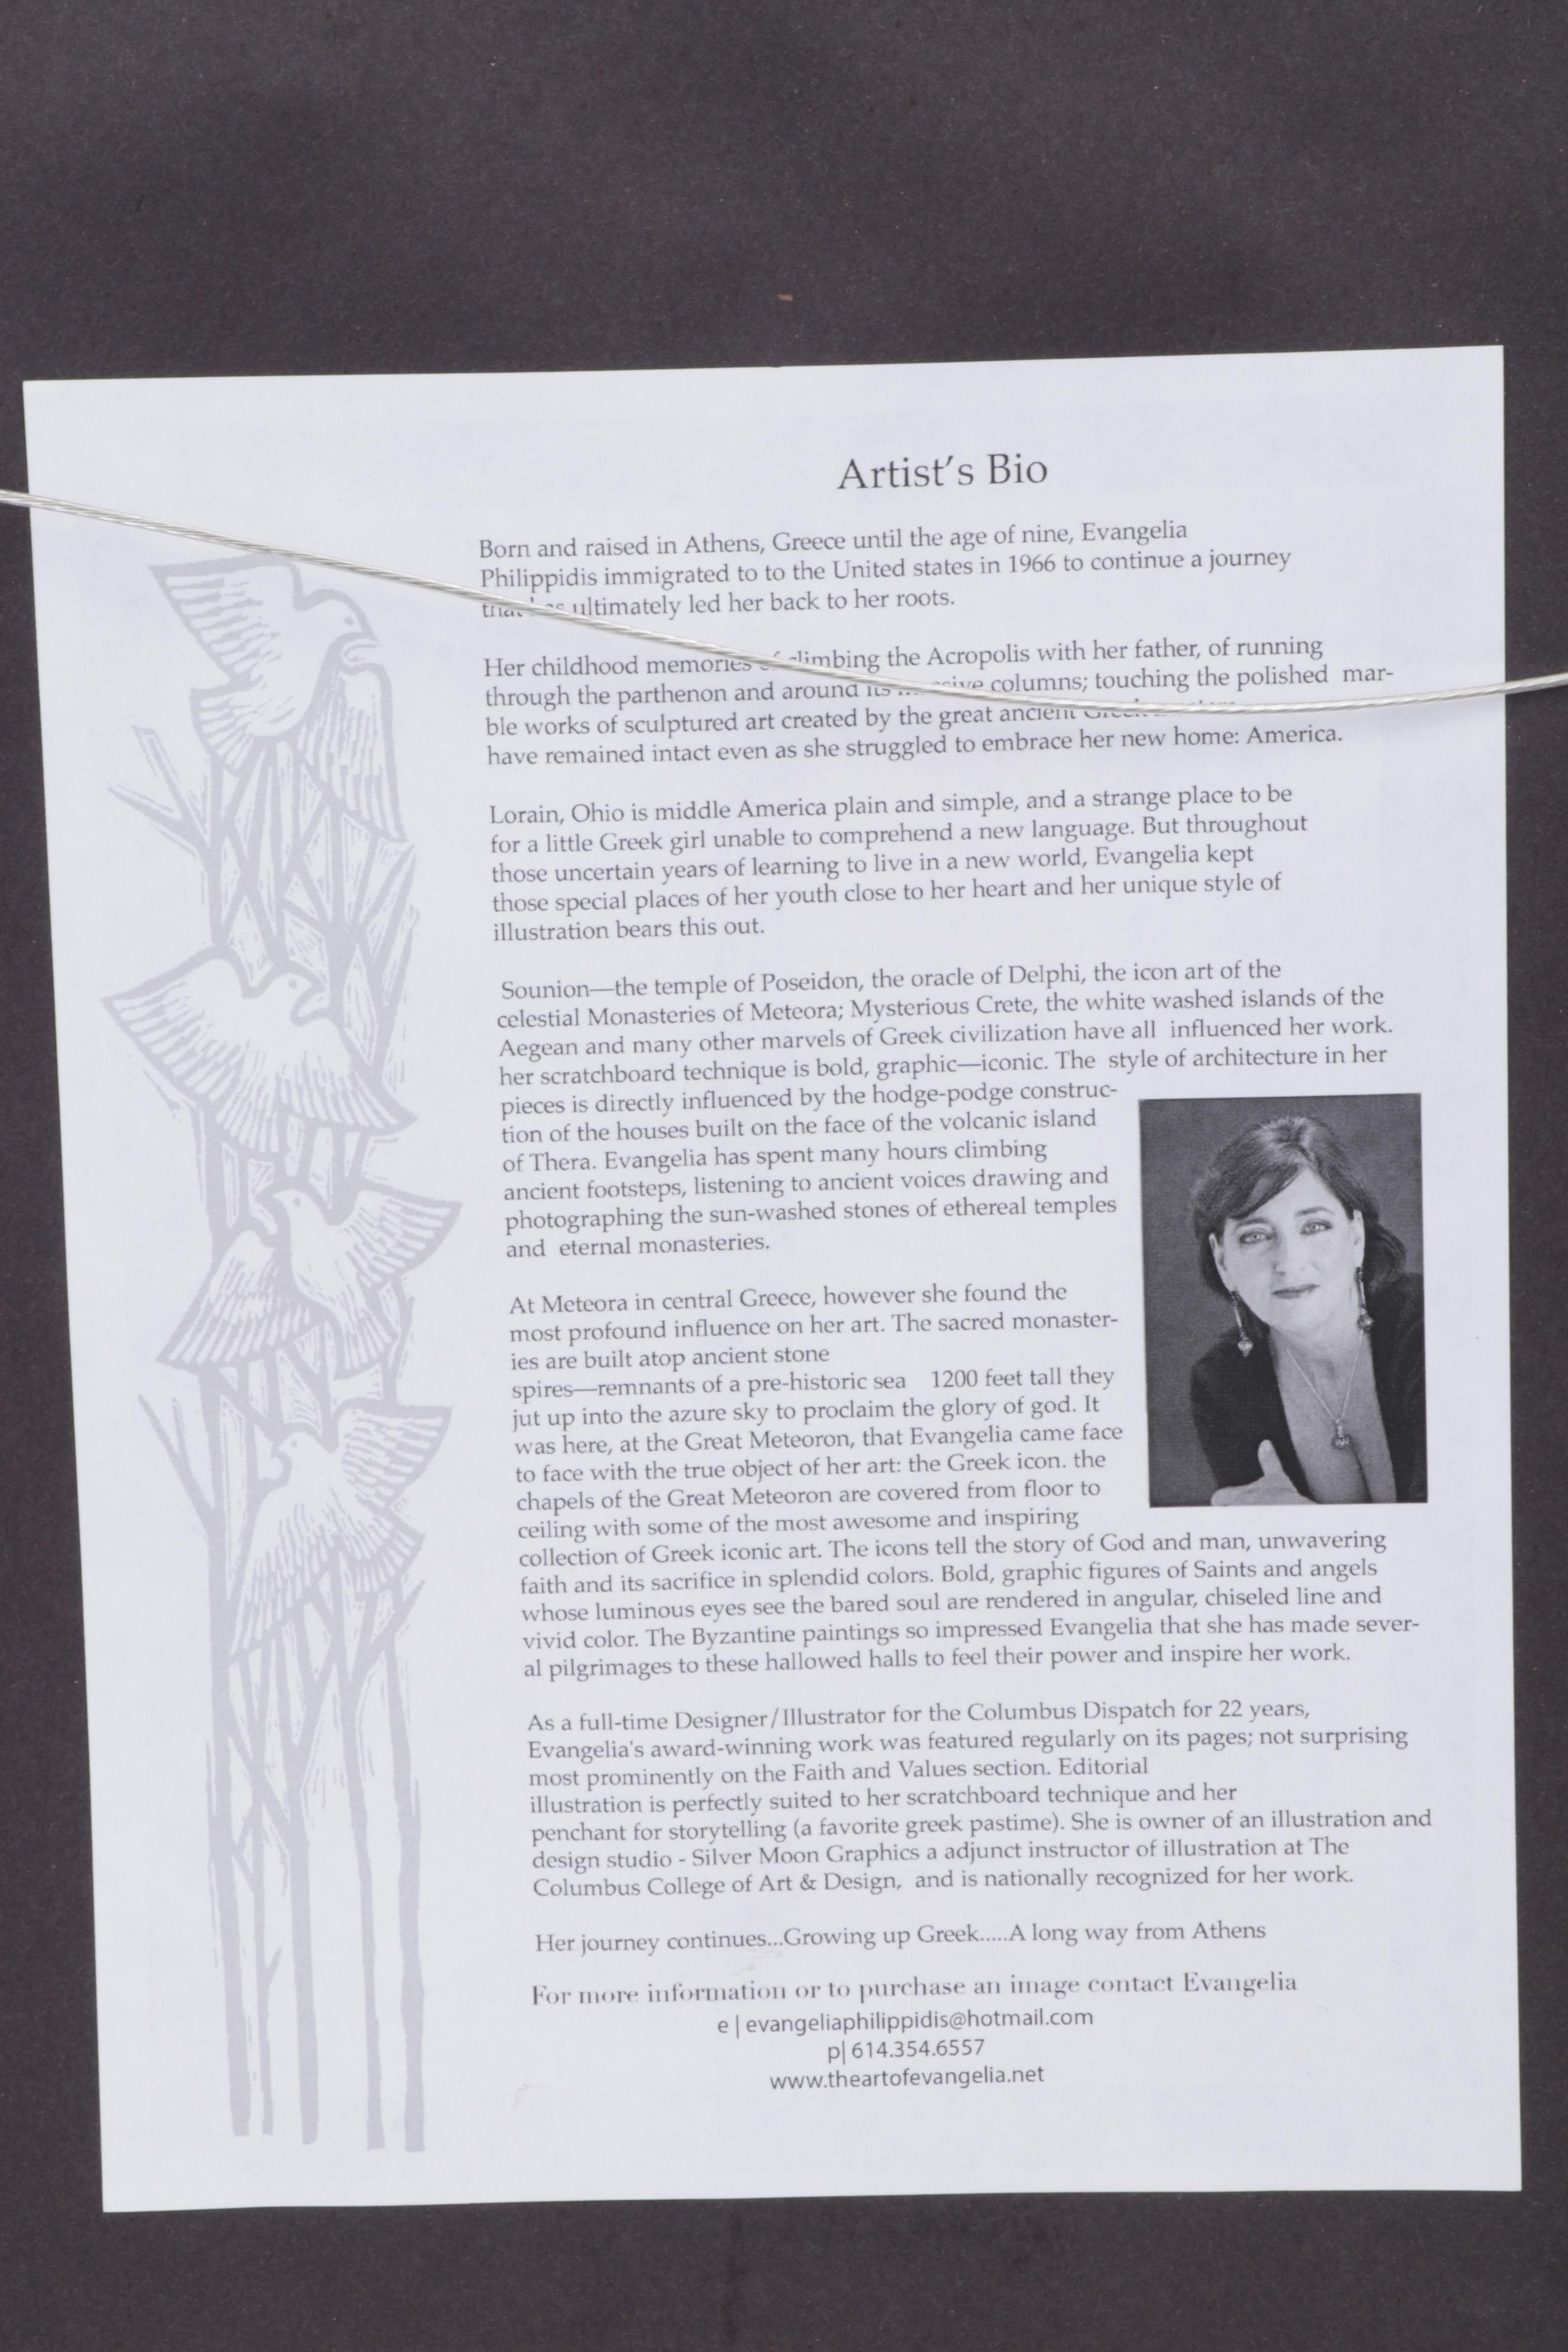 Artist's Bio
Born and raised in Athens, Greece until the age of nine, Evangelia
Philippidis immigrated to to the United states in 1966 to continue a journey
ultimately led her back to her roots.
Her childhood memories climbing the Acropolis with her father, of running
through the parthenon and around its columns; touching the polished mar-
ble works of sculptured art created by the great ancient
have remained intact even as she struggled to embrace her new home: America.
Lorain, Ohio is middle America plain and simple, and a strange place to be
for a little Greek girl unable to comprehend a new language. But throughout
those uncertain years of learning to live in a new world, Evangelia kept
those special places of her youth close to her heart and her unique style of
illustration bears this out.
Sounion—the temple of Poseidon, the oracle of Delphi, the icon art of the
celestial Monasteries of Meteora; Mysterious Crete, the white washed islands of the
Aegean and many other marvels of Greek civilization have all influenced her work.
her scratchboard technique is bold, graphic—iconic. The style of architecture in her
pieces is directly influenced by the hodge-podge construc-
tion of the houses built on the face of the volcanic island
of Thera. Evangelia has spent many hours climbing
ancient footsteps, listening to ancient voices drawing and
photographing the sun-washed stones of ethereal temples
and eternal monasteries.
At Meteora in central Greece, however she found the
most profound influence on her art. The sacred monaster-
ies are built atop ancient stone
spires—remnants of a pre-historic sea 1200 feet tall they
jut up into the azure sky to proclaim the glory of god. It
was here, at the Great Meteoron, that Evangelia came face
to face with the true object of her art: the Greek icon. the
chapels of the Great Meteoron are covered from floor to
ceiling with some of the most awesome and inspiring
collection of Greek iconic art. The icons tell the story of God and man, unwavering
faith and its sacrifice in splendid colors. Bold, graphic figures of Saints and angels
whose luminous eyes see the bared soul are rendered in angular, chiseled line and
vivid color. The Byzantine paintings so impressed Evangelia that she has made sever-
al pilgrimages to these hallowed halls to feel their power and inspire her work.
As a full-time Designer/Illustrator for the Columbus Dispatch for 22 years,
Evangelia's award-winning work was featured regularly on its pages; not surprising
most prominently on the Faith and Values section. Editorial
illustration is perfectly suited to her scratchboard technique and her
penchant for storytelling (a favorite greek pastime). She is owner of an illustration and
design studio - Silver Moon Graphics a adjunct instructor of illustration at The
Columbus College of Art & Design, and is nationally recognized for her work.
Her journey continues...Growing up Greek.....A long way from Athens
For more information or to purchase an image contact Evangelia
e | evangeliaphilippidis@hotmail.com
p| 614.354.6557
www.theartofevangelia.net